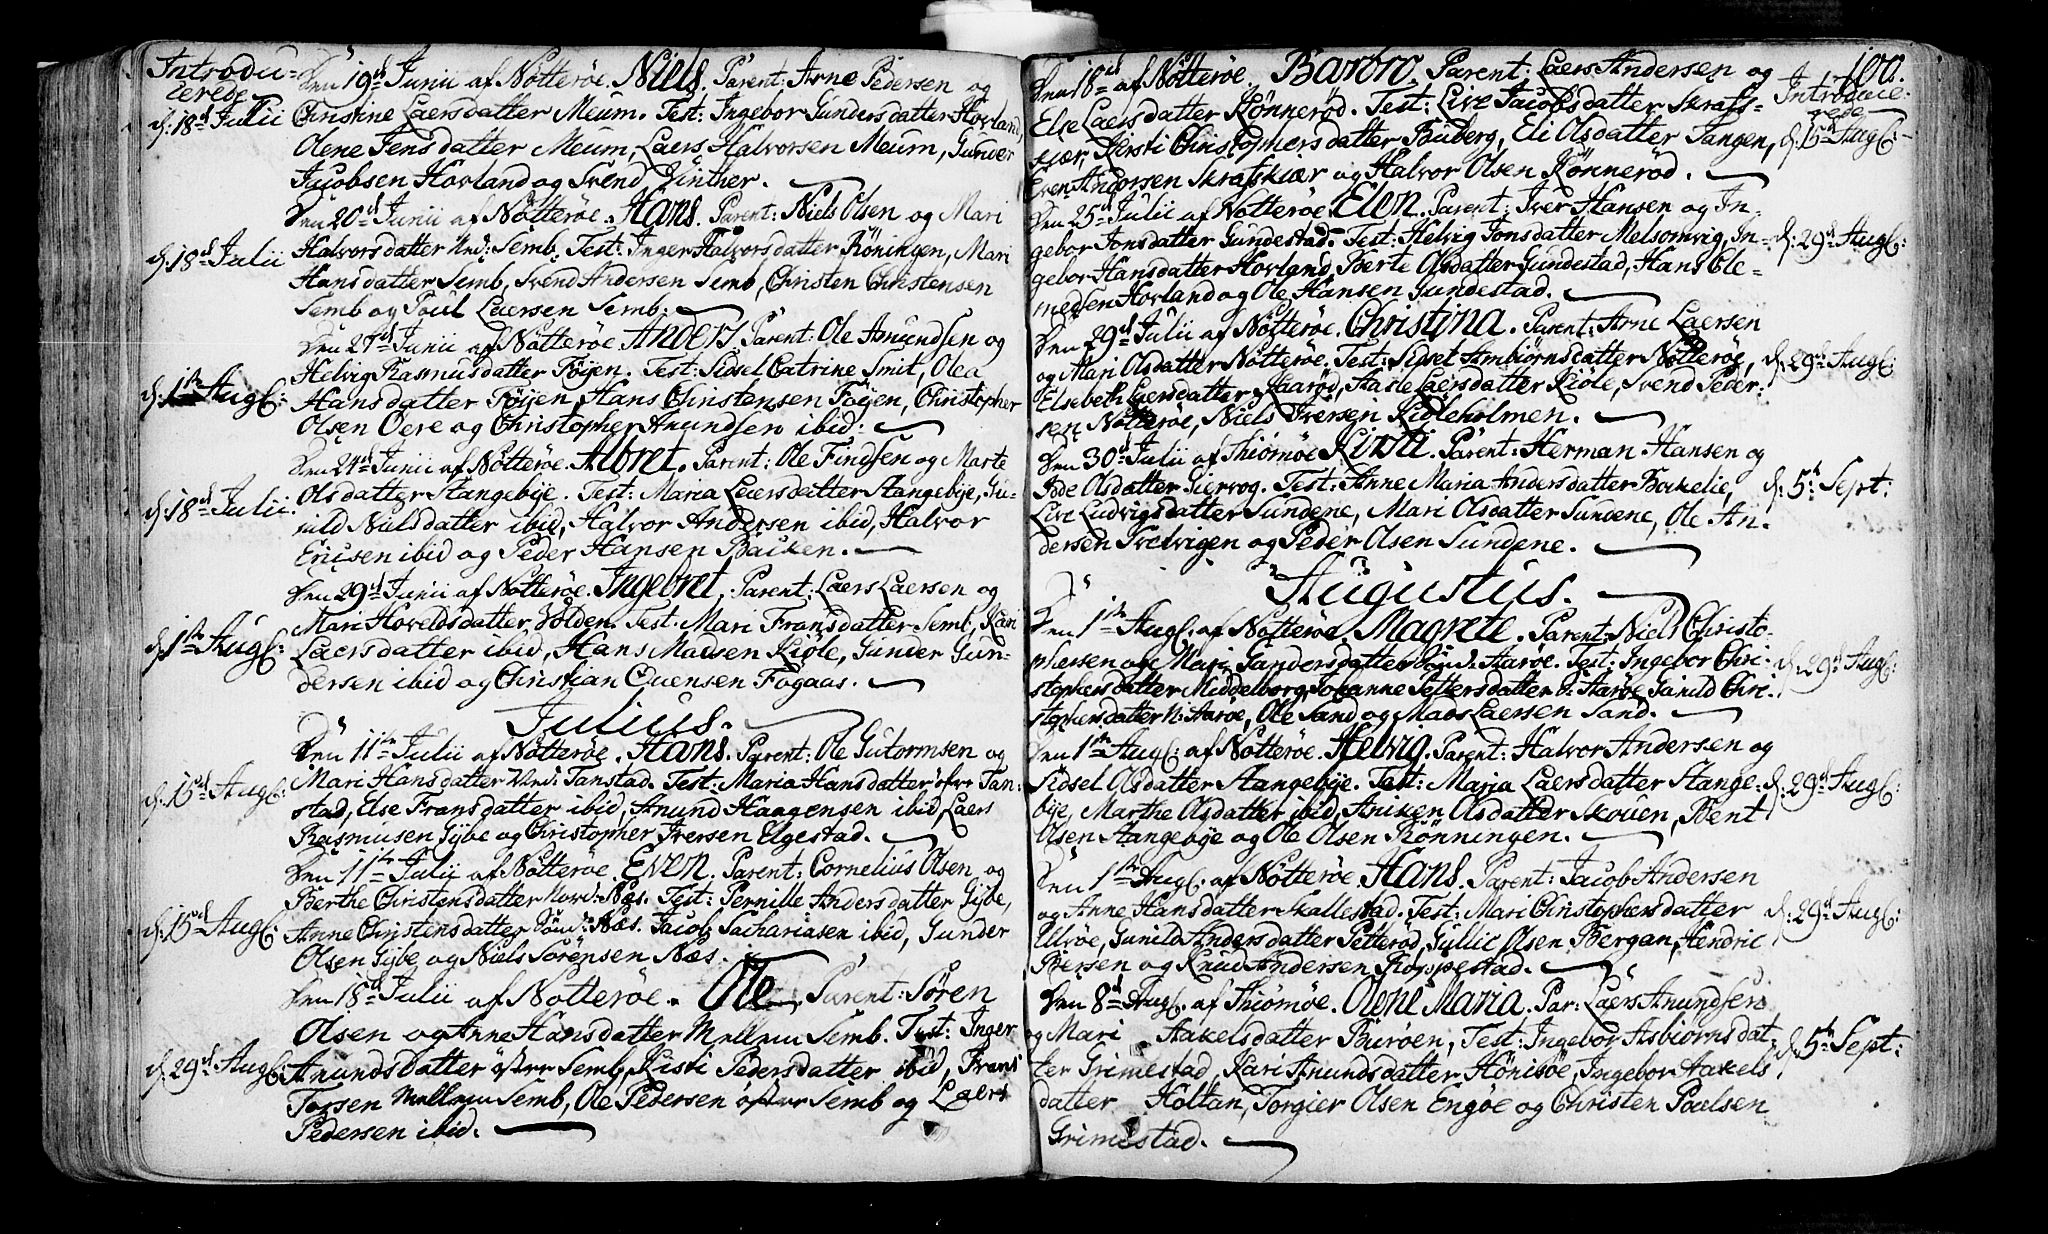 Introdu-
cerede
Den 19de Junii af Nötteröe. Niels. Parent: Arne Pedersen og
d: 18de Julii Christine Laersdatter Meum. Test: Ingebor Gundersdatter Hovland,
Olene Jensdatter Meum, Laers Halvorsen Meum, Gunder
Jacobsen Hovland og Svend Vinther.
Den 20de Junii af Nötteröe. Hans. Parent: Niels Olsen og Mari
d: 18de Julii Halvorsdatter Semb. Test: Inger Halvorsdatter Röningen, Mari
Hansdatter Semb, Svend Andersen Semb, Christen Christensen
Semb og Poul Laersen Semb.
Den Junii af Nötteröe. Anders. Parent: Ole Anundsen og
Helvig Rasmusdatter Föyen. Test: Sidsel Catrine Smit, Olea
d: 1te Augl: Hansdatter Föyen, Hans Christensen Föyen, Christopher
Olsen Oere og Christopher Anundsen ibid:
Den 24de Junii af Nötteröe. Albret. Parent: Ole Findsen og Marte
d: 18de Julii. Olsdatter Stangebye. Test: Maria Laersdatter Stangebye, Gu-
nild Nielsdatter ibid, Halvor Andersen ibid, Halvor
Ericsen ibid og Peder Hansen Backen.
Den 29de Junii af Nötteröe. Ingebret. Parent: Laers Laersen og
Mari Hoveldsdatter Volden. Test: Mari Fransdatter Semb, Kari
d: 1te Augl: Laersdatter ibid, Hans Madsen Kiöle, Gunder Gun-
dersen ibid og Christian Evensen Fogaas.
Julius.
Den 11te Julii af Nötteröe. Hans. Parent: Ole Gutormsen og
d: 15de Augl: Mari Hansdatter Tanstad. Test: Maria Hansdatter öfre Tan-
stad, Else Fransdatter ibid, Anund Haagensen ibid, Laers
Rasmusen Gipöe og Christopher Iversen Elgestad.
Den 11te Julii af Nötteröe. Even. Parent: Cornelius Olsen og
Berthe Christensdatter Nord: Næs. Test: Pernille Andersdatter Gipöe,
d: 15de Augl: Anne Christensdatter Sönd: Næs. Jacob Zachariasen ibid, Gunder
Olsen Gipöe og Niels Sörensen Næs.
Den 18de Julii af Nötteröe. Ole. Parent: Sören
Olsen og Anne Hansdatter Mellem Semb. Test: Inger
d: 29de Augl: Anundsdatter öster Semb, Kisti Pedersdatter ibid, Frans
Torsen Mellem Semb, Ole Pedersen öster Semb og Laers
Pedersen ibid.
100.
Den 18de af Nötteröe. Barbro. Parent: Laers Andersen og Introduce-
Else Laersdatter Rönneröd. Test: Live Jacobsdatter Skrafs- rede
kiær, Kersti Christophersdatter Buberg, Eli Olsdatter Tangen, d: 15de Augl:
Even Andersen Skrafskiær og Halvor Olsen Rönneröd.
Den 25de Julii af Nötteröe. Elen. Parent: Iver Hansen og In-
gebor Jonsdatter Gundestad. Test: Helvig Jonsdatter Melsomvig, In- d: 29de Augl:
gebor Hansdatter Hovland, Berte Olsdatter Gundestad, Hans Cle-
medsen Hovland og Ole Hansen Gundestad.
Den 29de Julii af Nötteröe. Christina. Parent: Arne Laersen
og Mari Olsdatter Nötteröe. Test: Sidsel Ambiörnsdatter Nötteröe, d: 29de Augl:
Elsebeth Laersdatter Kaaröd, Karie Laersdatter Kiöle, Svend Peder-
sen Nötteröe, Niels Iversen Kiöleholmen.
Den 30de Julii af Thiömöe Kirsti. Parent: Herman Hansen og
Ode Olsdatter Giervog. Test: Anne Maria Andersdatter Bakelie, d: 5te Sept:
Live Ludvigsdatter Sundene, Mari Olsdatter Sundene, Ole An-
dersen Tvedvigen og Peder Olsen Sundene.
Augustus.
Den 1te Augl. af Nötteröe. Magrete. Parent: Niels Christo-
phersen og Mari Gundersdatter Sönd: Aaröe. Test: Ingebor Chri- d: 29de Augl:
stophersdatter Middelborg, Johanne Pettersdatter S: Aaröe, Gunild Chri-
stophersdatter N: Aaröe, Ole Sand og Mads Laersen Sand.
Den 1te Augl: af Nötteröe. Helvig. Parent: Halvor Andersen og
Sidsel Olsdatter Stangebye. Test: Maria Laersdatter Stange- d: 29de Augl:
bye, Marthe Olsdatter ibid, Aniken Olsdatter Skouen, Bent
Olsen Stangebye og Ole Olsen Rönningen.
Den 1te Augl. af Nötteröe. Hans. Parent: Jacob Andersen
og Anne Hansdatter Skallestad. Test: Mari Christophersdatter d: 29de Augl:
Ulvöe, Gunild Andersdatter Petteröd, Gullic Olsen Bergan, Hendric
Bersen og Knud Andersen Roppestad.
Den 8de Augl. af Thiömöe. Olene Maria. Par: Laers Anundsen
og Mari Aakelsdatter Buröen, Test: Ingebor Asbiörnsdat- d: 5te Sept:
ter Grimestad, Kari Anundsdatter Hönisöe, Ingebor Aakels
datter Holtan, Torgier Olsen Engöe og Christen Paulsen
Grimestad.